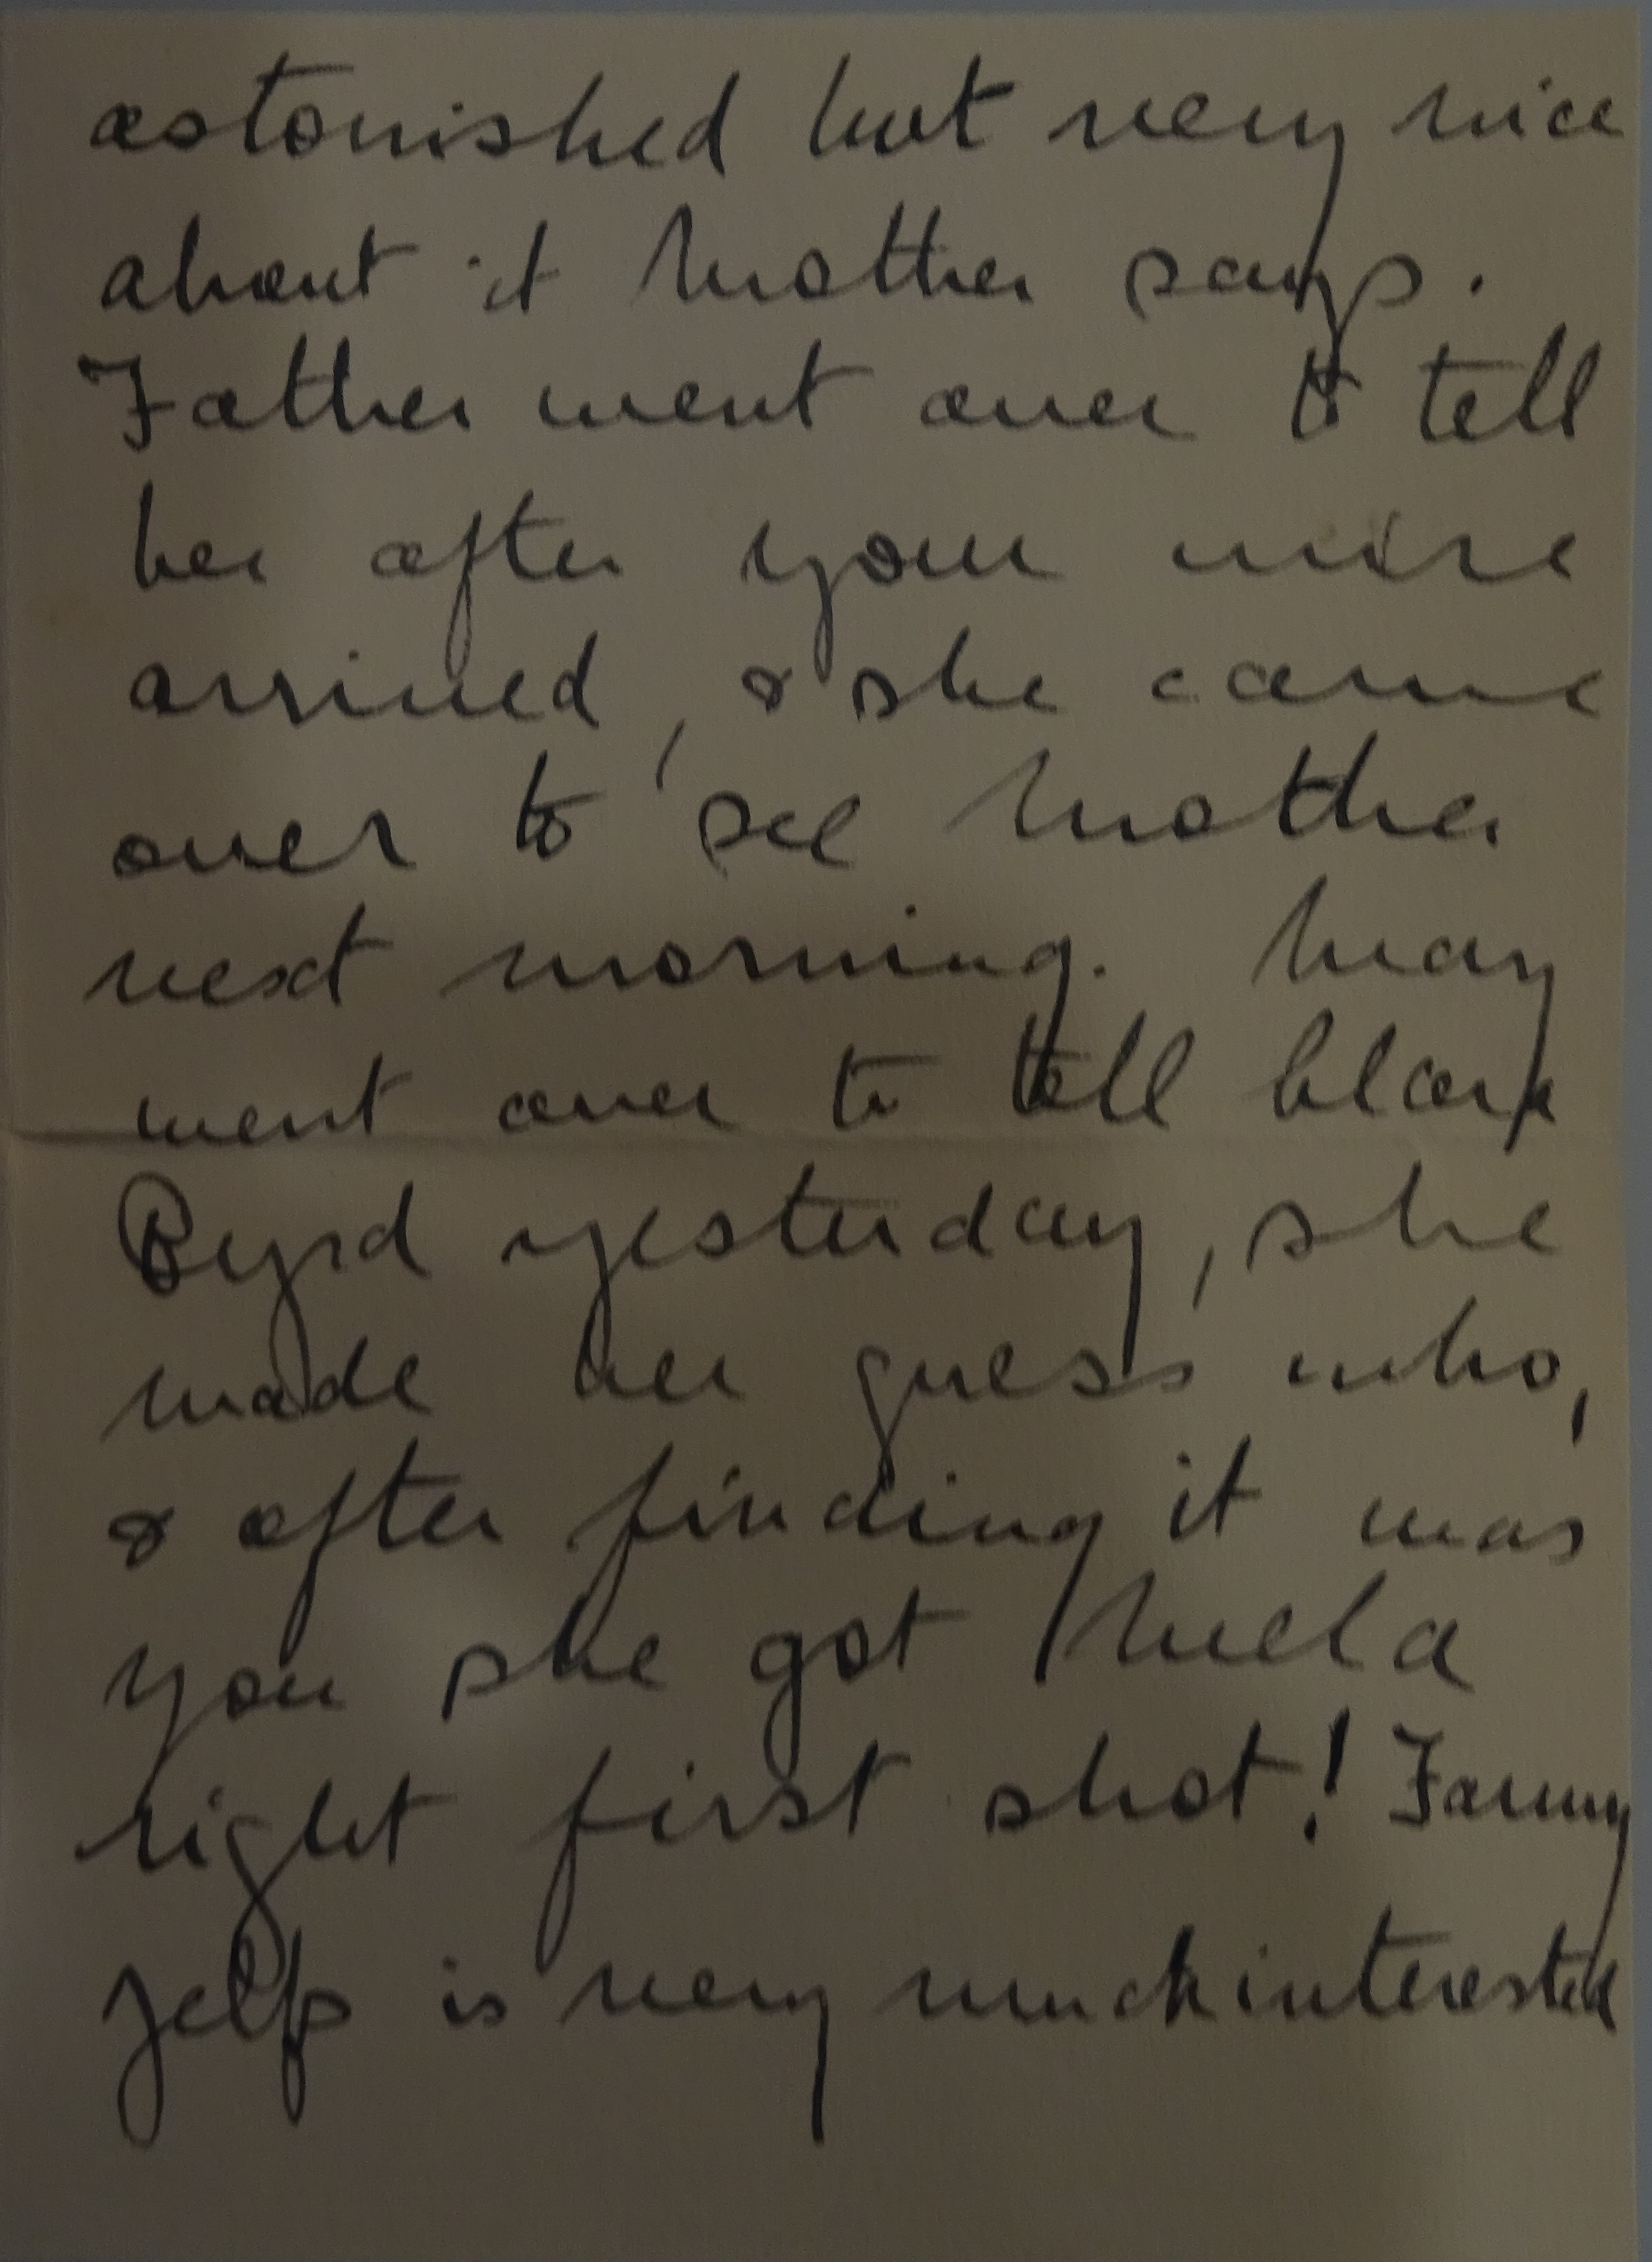 astonished but very nice
about it Mother says.
Father went over to tell
her after your wire
arrived, & she came
over to see Mother
next morning. Mary
went over to tell
Byrd yesterday, she
made her guess who,
& after finding it was
you she got Mela
right first shot! Fanny
is very much interested